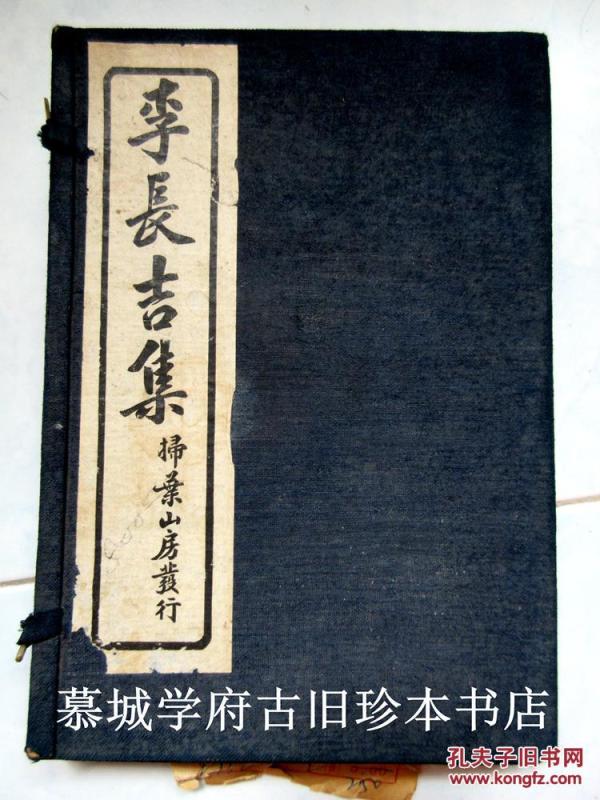 李長吉集
掃葉山房發行
慕城学府古旧珍本书店
孔夫子旧书网
www.kongfz.com
250